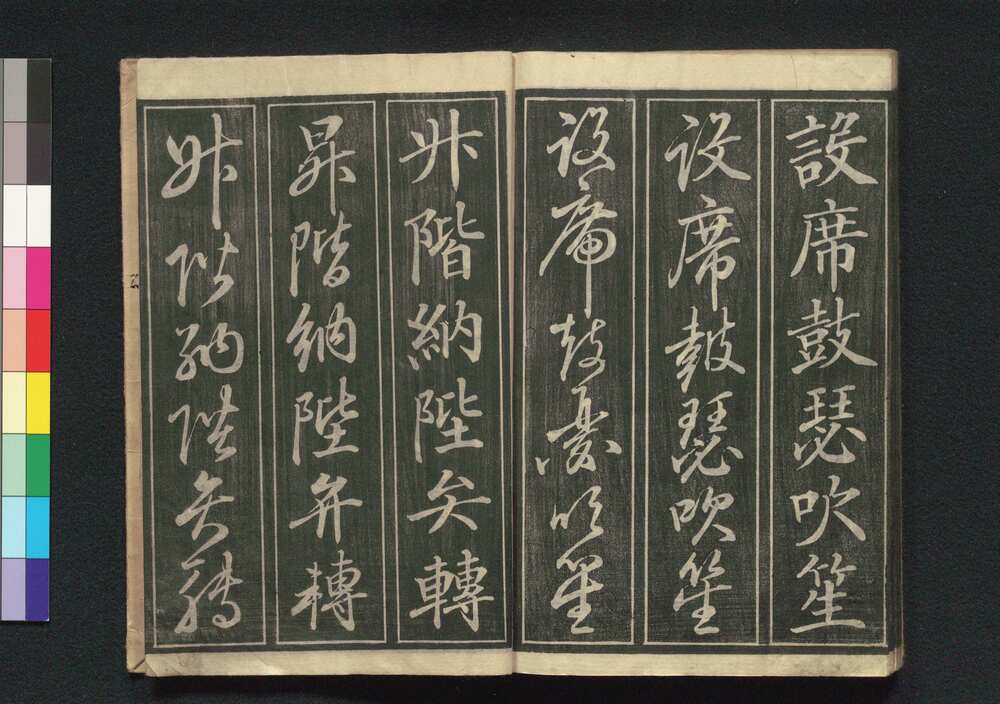 設席鼓瑟吹笙
設席皷瑟吹笙
設席鼓瑟吹笙
升階納陛弁轉
昇階納陛弁轉
升階納陛弁轉